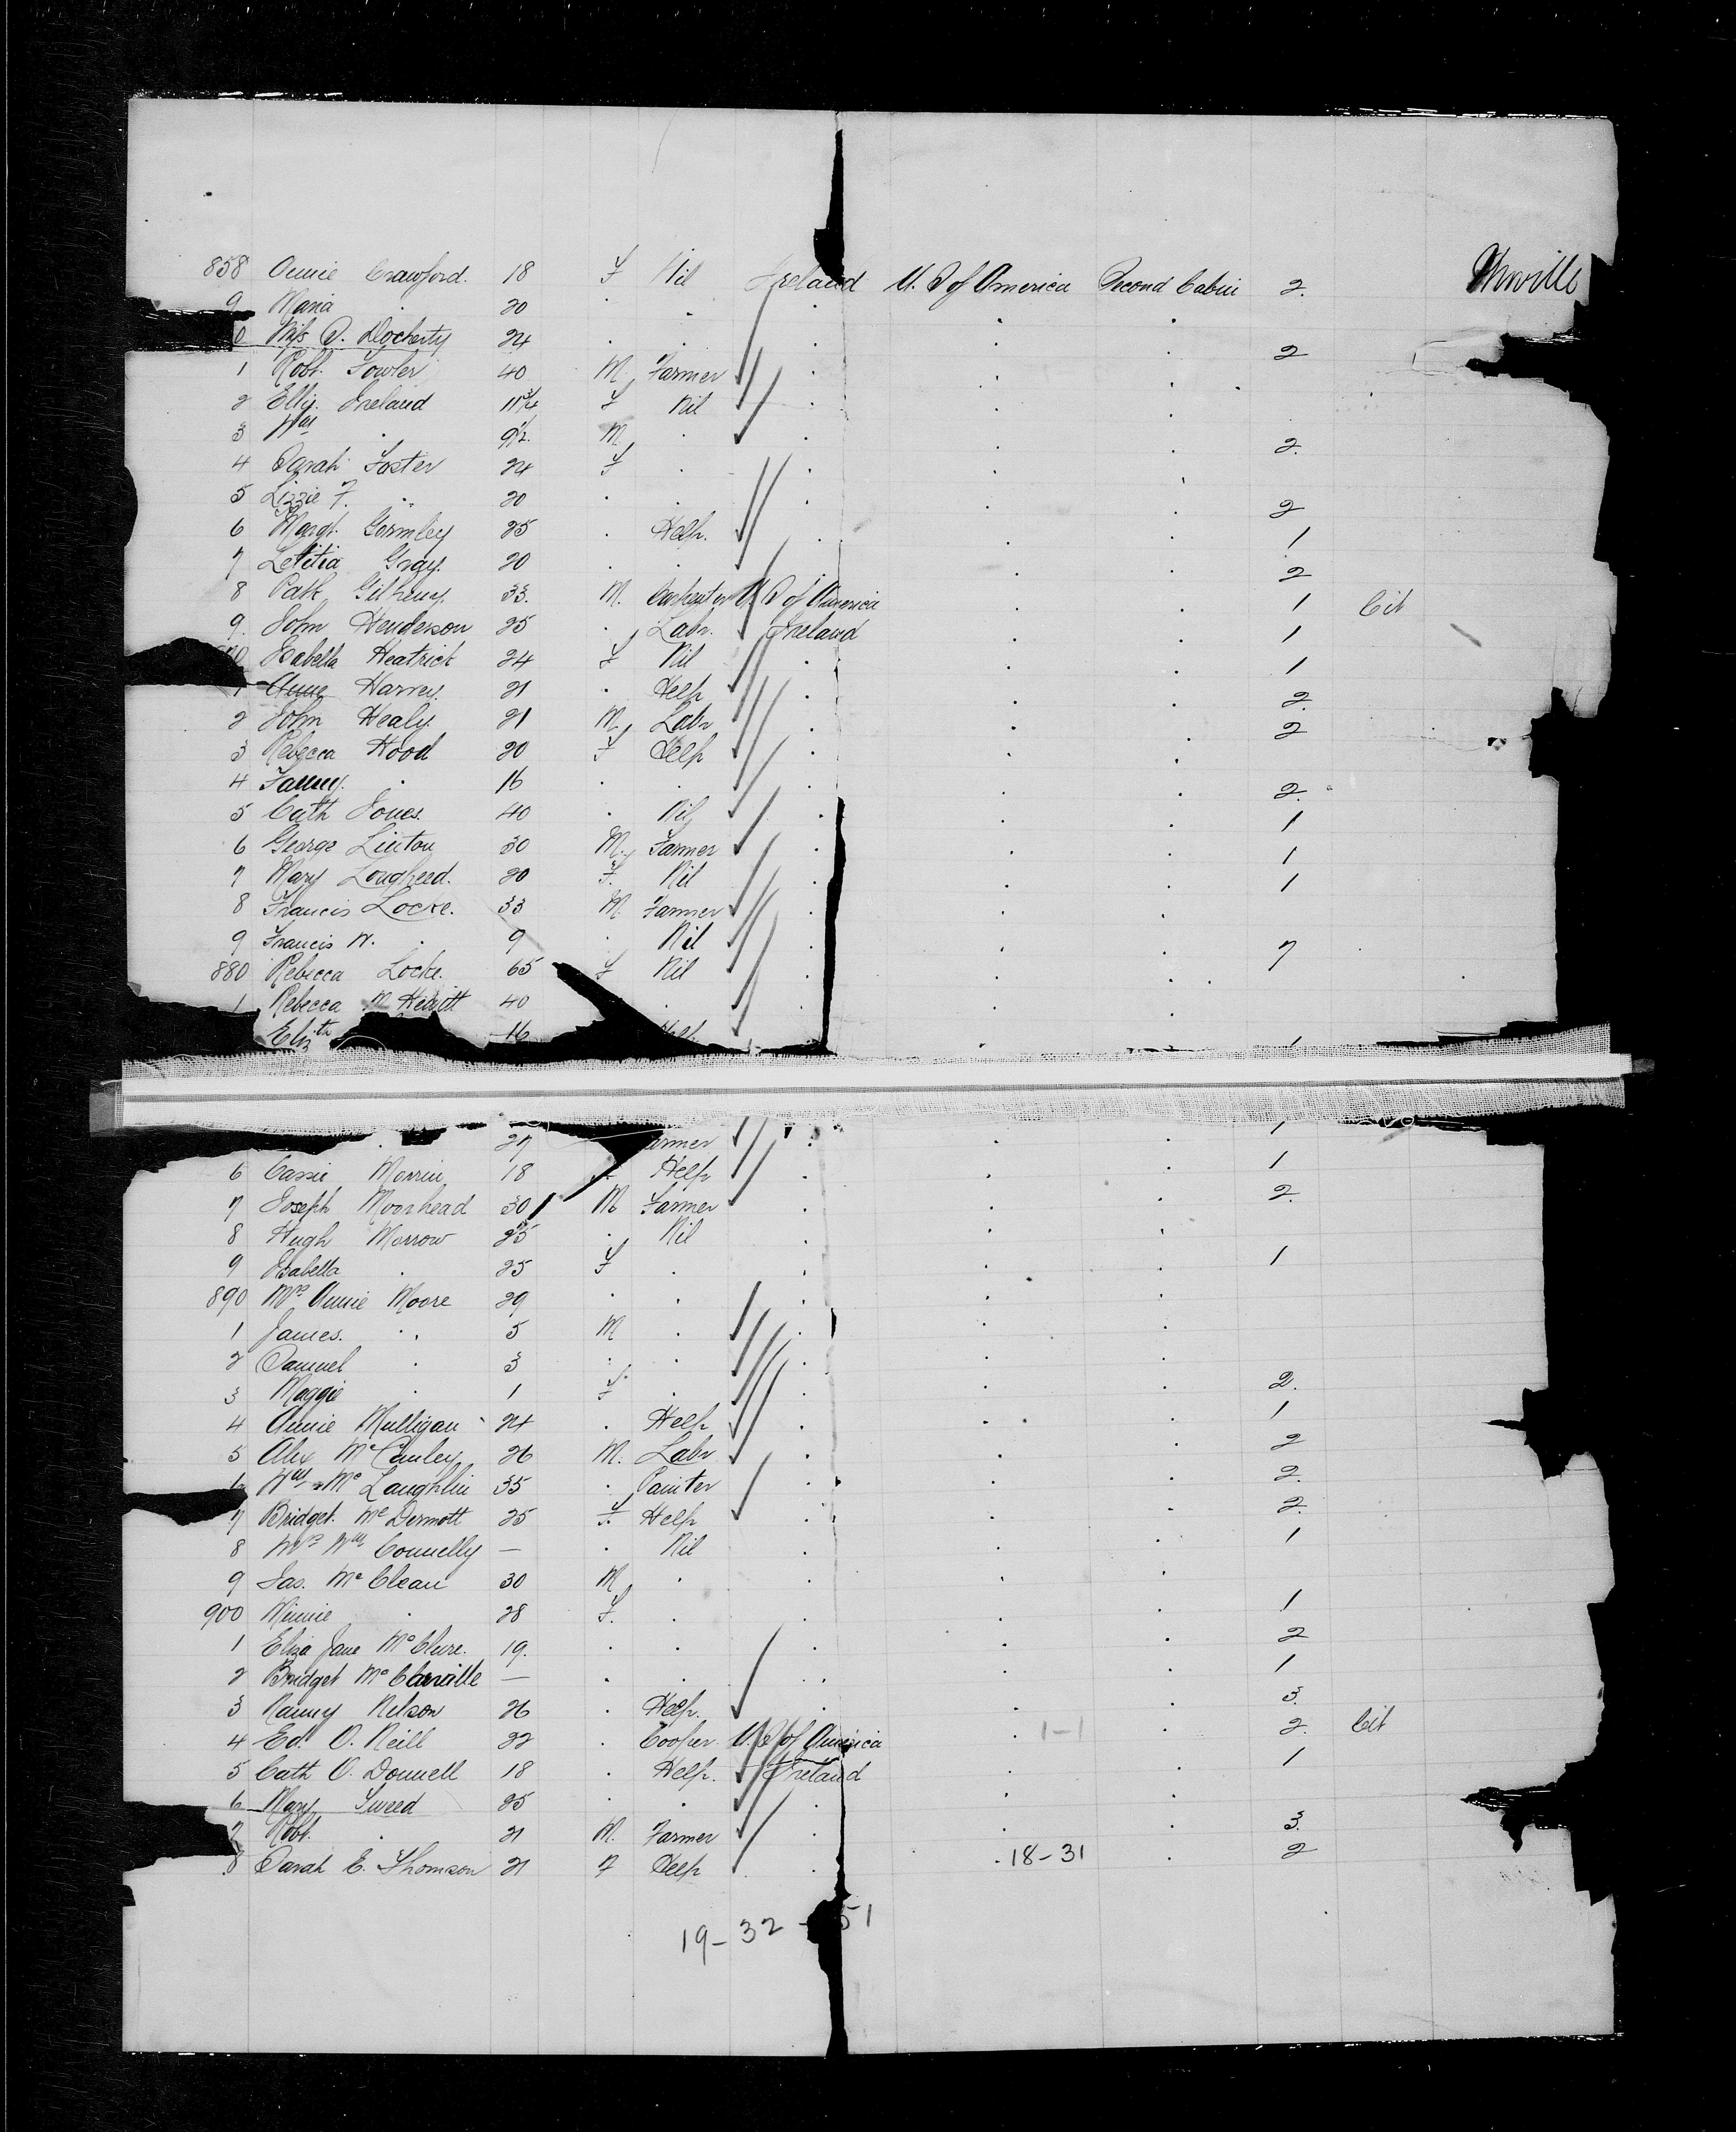 858 Annie Crawford. 18 F Nil Ireland U. S of America Second Cabin 2.
9 Maria . 20 . . . . .
0 Miss S. Docherty 24 . . . . . 2
1 Robt. Fowler 40 M Farmer . . .
2 Elly. Ireland 11¾ F Nil . . .
3 Wm . 9½ M . . . . 2.
4 Sarah Foster 24 F . . . .
5 Lizzie F. " 20 . . . . . 2
6 Margt. Gormley 25 . Help. . . . 1
7 Letitia Gray. 20 . . . . . 2
8 Patk 33. M. Carpenter U S of America . . 1 Cit
9. John Henderson 25 . Labr. Ireland . . 1
Isabella Heatrick 24 F Nil . . . 1
1 Anne Harvey. 21 . Help . . . 2.
2 John Healy 21 M. Labr . . . 2
3 Rebecca Hood 20 F Help . . .
4 Fanny. . 16 . . . . . 2.
5 Cath Jones. 40 . Nil . . . 1
6 George Linton 30 M. Farmer . . . 1
7 Mary Lougheed. 20 F. Nil . . . 1
8 Francis Locke. 33 M. Farmer . . .
9 Francis W. . 9 . Nil . . . 7
880 Rebecca Locke. 65 F Nil . . .
1 Rebecca M Hewitt 40 . . . .
Elizth 16 Help . . 1
. 27 armer . . . 1
6 Cassie Morrin 18 Help . . . 1
7 Joseph Moorhead 30 M Farmer . . . 2.
8 Hugh Morrow 25 . Nil . . .
9 Isabella . 25 F . . . . 1
890 Mrs Annie Moore 29 . . . . .
1 James. " 5 M . . . .
2 Samuel . 3 . . . . .
3 Maggie . 1 F . . . . 2.
4 Annie Mulligan 24 . Help . . . 1
5 Alex McCauley 26 M. Labr . . . 2
6 Wm McLaughlin 35 . Painter . . . 2.
7 Bridget. McDermott 25 F. Help . . . 2.
8 Mrs Wm Connelly — . Nil . . . 1
9 Jas. McClean 30 M . . . .
900 Minnie . 28 F. . . . . 1
1 Eliza Jane McClure. 19. . . . . . 2
2 Bridget — . . . . . 1
3 Nanny Nelson 26 . Help. . . . 3.
4 Ed. O. Neill 22 . Cooper U. S of America 1-1 . 2. Cit
5 Cath O. Donnell 18 . Help. Ireland . . 1
6 Mary Sweed 25 . . . . .
7 Robt. . 21 M. Farmer . . . 3.
8 Sarah E. Thomson 21 F Help . 18-31 . 2
19-32-51